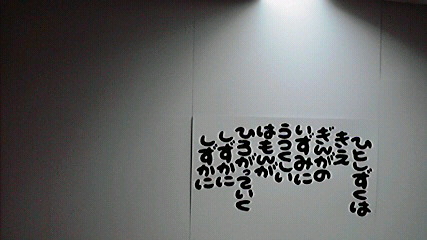 ひとしずくは
きえ
ぎんがの
いずみに
うつくしい
はもんが
ひろがっていく
しずかに
しずかに